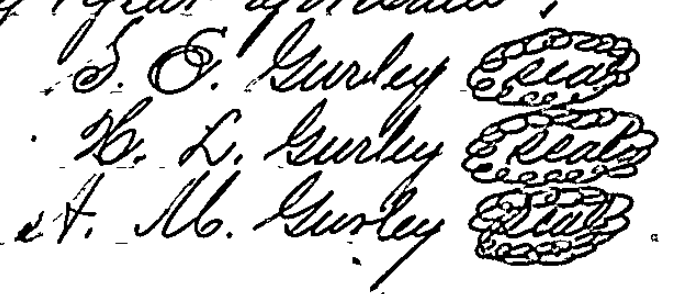 S. E. Gurley Seal
H. L. Gurley Seal
A. M. Gurley Seal